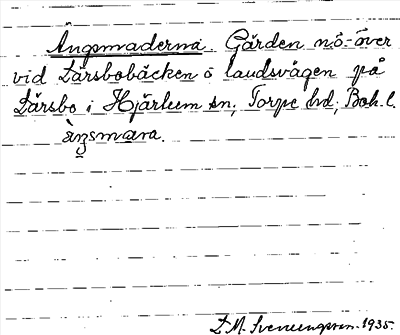 Ängsmaderna. Gärden n.ö. över
vid Lärsbobäcken ö landsvägen på
Lärsbo i Hjärtum sn, Torpe hd, Boh. l.
ängsmara.
L. M. Svenungsson. 1935.